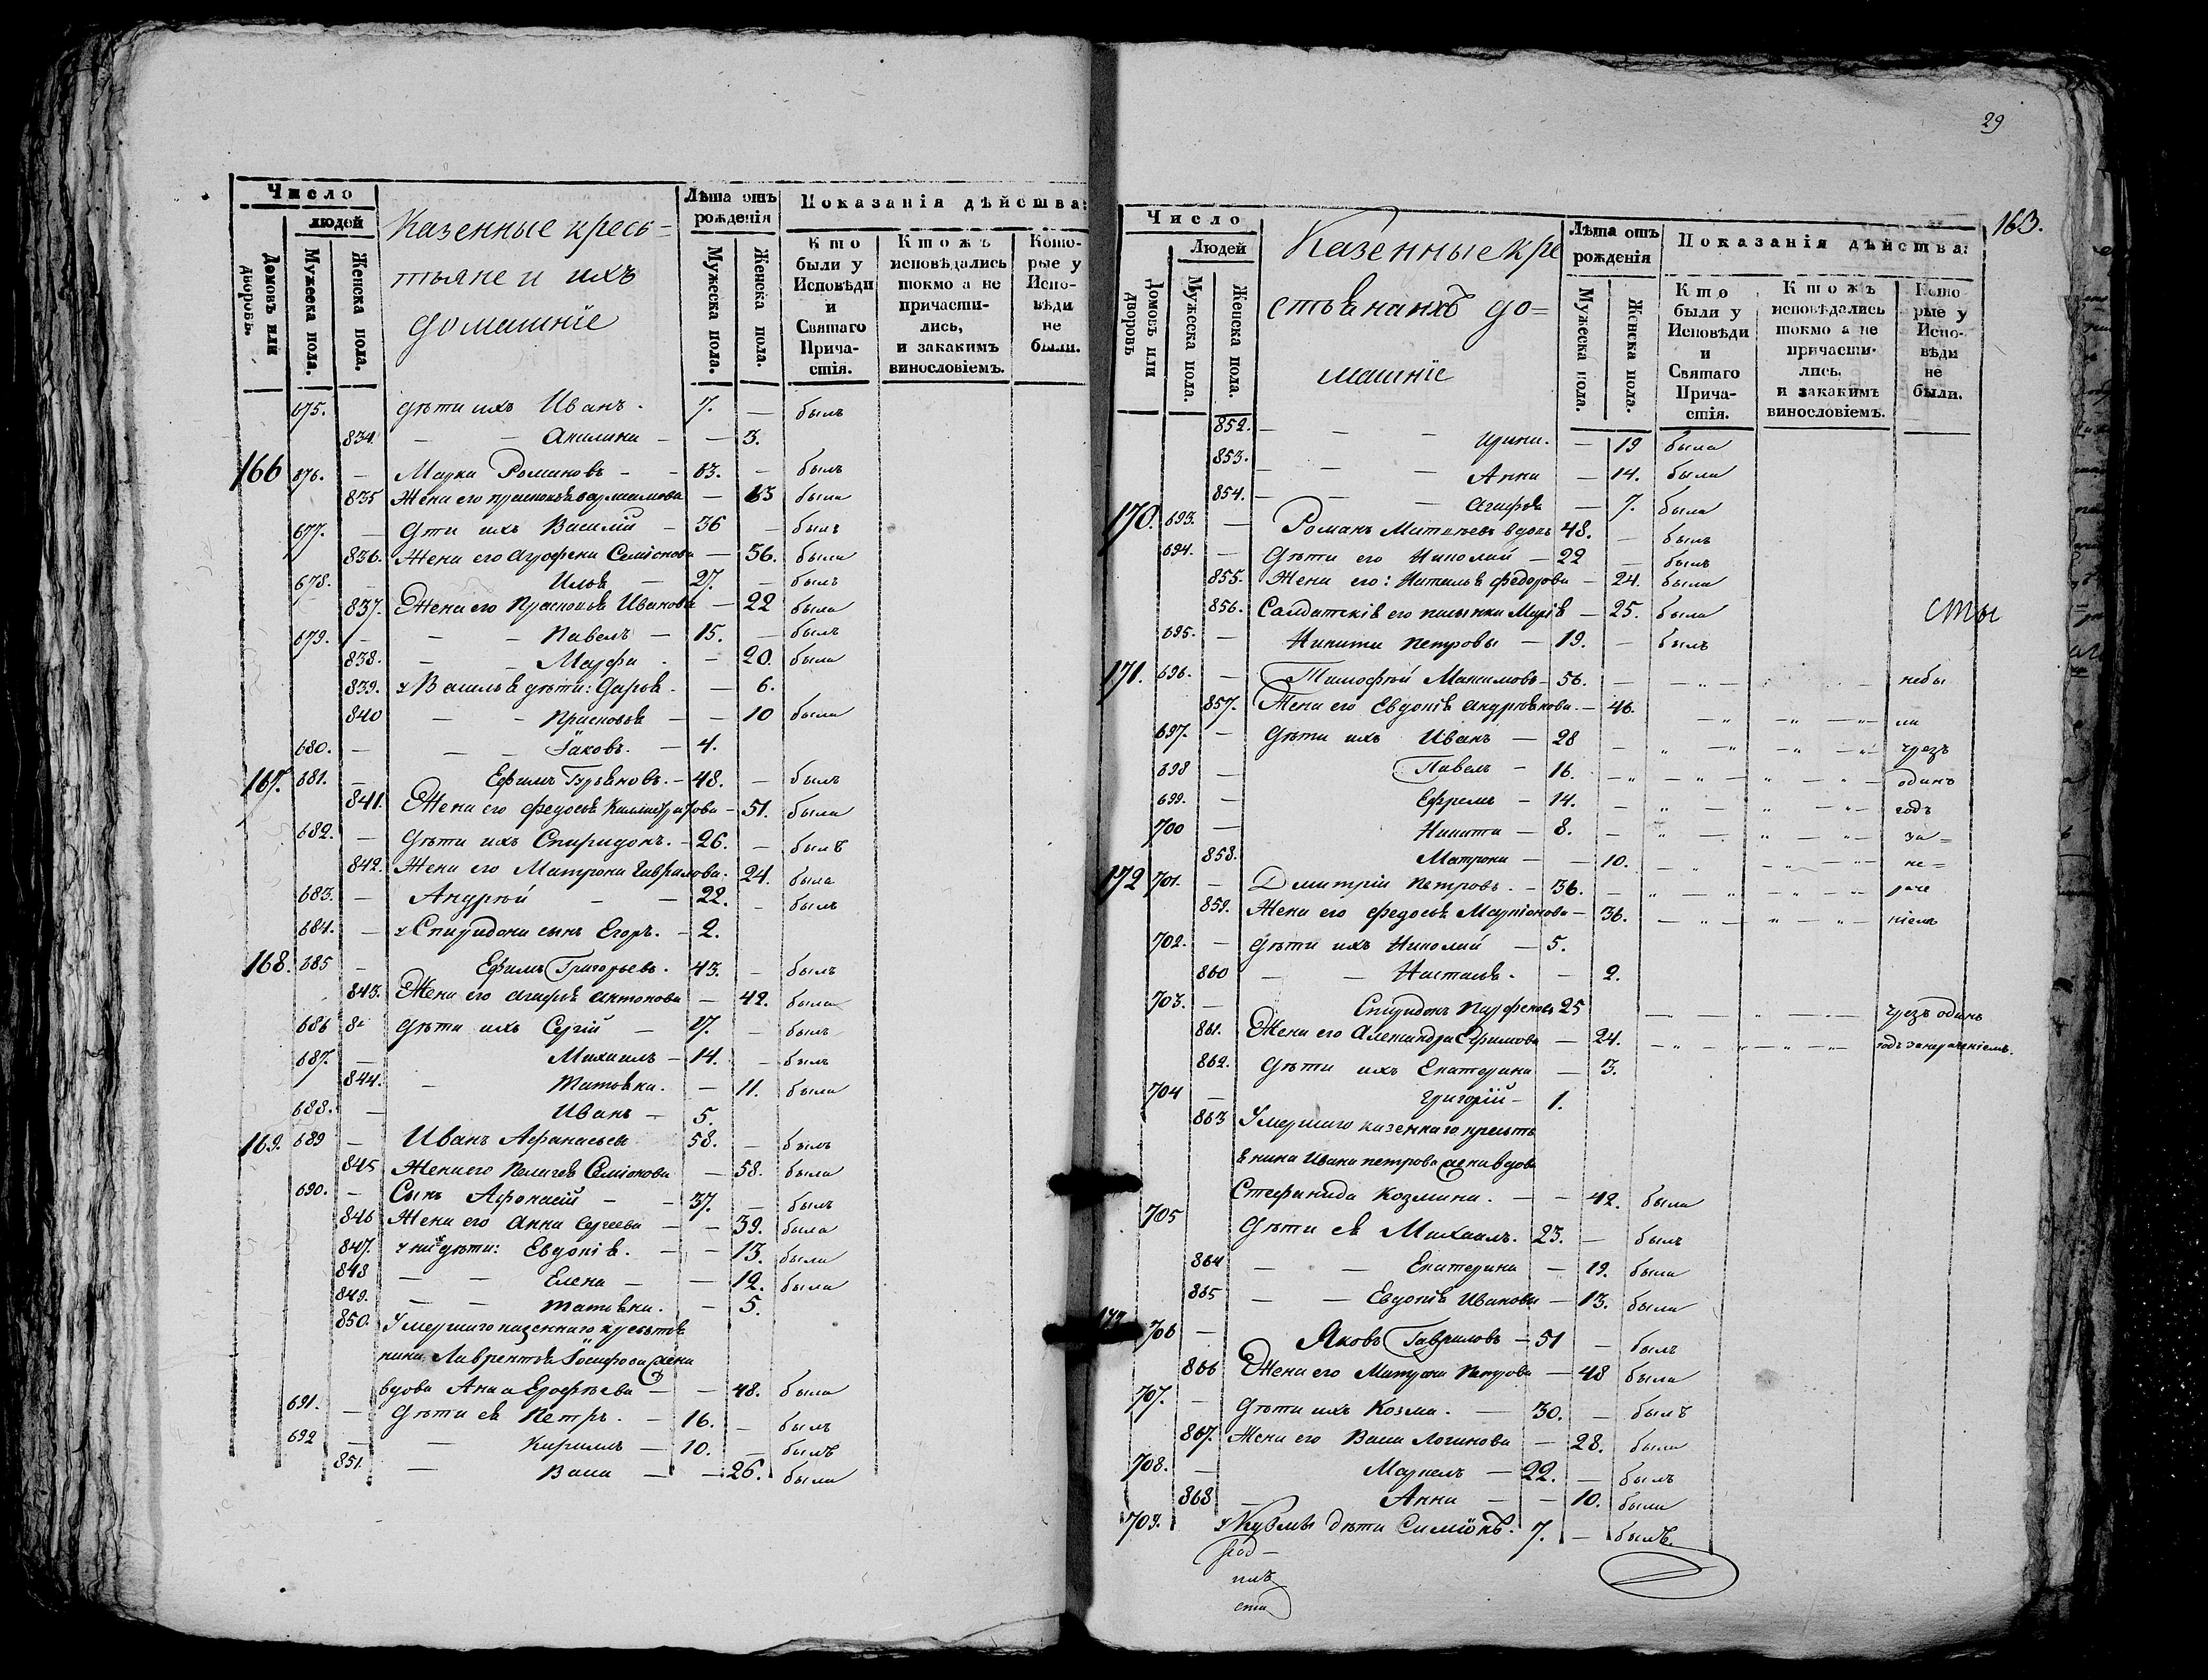 Число
людей
Домовъ или дворовъ.
Мужеска пола.
Женска пола.
Казенные кресь=
тьяне и ихъ
домашніе
Лѣта отъ рожденія
Мужеска пола.
Женска пола.
Показанія дѣйства:
Кто были у Исповѣди и Святаго Причастія.
Ктожъ исповѣдались токмо а не причастились, и закакимъ винословіемъ.
Которые у Исповѣди не были.
675. дѣти ихъ Иванъ. 7. — былъ
834. — — Акилина — — 3.
166 676. — Марка Романовъ — 63. — былъ
835 Жена его — 63 была
677. — Дѣти ихъ Василій — 36 — былъ
836. Жена его Агрофена Семіонова — 56. была
678. — Илья — 27. — былъ
837. Жена его Прасковья Иванова — 22 была
679. — — — Павелъ — 15. — былъ
838. — — Марфа — 20. была
839. у Василья дѣти: Дарья. — 6.
840 — — Прасковья — — 10 была
680. — — — Іаковъ. — 4.
167. 681. — Ефимъ Гурьяновъ. — 48. — былъ
841. Жена его Федосья Каллистратова — 51. была
682. — Дѣти ихъ Спиридонъ. — 26. — былъ
842. Жена его Матрона Гаврилова. 24. была
683. — Андрѣй — — 22. — былъ
684. — у Спиридона сынъ Егоръ. — 2.
168. 685 — Ефимъ Григорьевъ. 43. — былъ
843. Жена его Агафья Антонова — 42. была
686 Дѣти ихъ Сергій — 17. — былъ
687. — Михаилъ — 14. — былъ
844. — Татьяна. — 11. была
688. — Иванъ — 5.
169. 689 — Иванъ Афанасьевъ 58. — былъ
845 Жена его Пелагея Семіонова — 58. была
690. — Сынъ Афонасій — — 37. — былъ
846 Жена его Анна Сергеева — — 39. была
847. у нихъ дѣти: Евдокія. — — 13. была
848 — — Елена — — 12. была
849. — — Татьяна. — 5.
850. Умершаго казеннаго кресьтья
нина Лаврентья Іосифова жена
вдова Анна Ерофѣева — — 48. была
691. — Дѣти ея Петръ. — 16. — былъ
692 — — Кирилъ — 10. — былъ
851. — Васа — — 26. была
29
163.
Число
Людей
Домовъ или дворовъ
Мужеска пола.
Женска пола.
Казенные кре
стьянанхъ до=
машніе
Лѣта отъ рожденія
Мужеска пола.
Женска пола.
Показанія дѣйства:
Кто были у Исповѣди и Святаго Причастія.
Ктожъ исповѣдались токмо а не причастились, и закакимъ винословіемъ.
Которые у Исповѣди не были.
852. — — — Ирина. — 19 была
853. — — — Анна — 14. была
854. — — Агафья — 7. была
170. 693. — Романъ Матвѣевъ вдовъ 48. — былъ
694. — Дѣти его Николай — 22 — былъ
855. Жена его: Наталья Федорова — 24. была
856. Салдатскія его Марія — 25. была
сты
695. — Никита Петровы — 19. — былъ
171. 696. — Тимофѣй Макимовъ — 56. — небы
857. Жена его Евдокія Андреянова. — 46. ли
697. — Дѣти ихъ Иванъ — 28 — чрезъ
698 — Павелъ — 16. — одинъ
699. — Ефремъ — 14. — годъ
700 — Никита — 8. — за=
858. Матрона — — 10. — не=
172 701. — Дмитрій Петровъ. — 36. — раче
859. Жена его Федосья Маркіонова — 36. — ніемъ
702. — Дѣти ихъ Николай — 5.
860 — — Настасья. — 2.
703. — Спиридонъ Парфеновъ 25 чрезъ одинъ
861. Жена его Александра Ефимова — 24. годъ занераченіемъ.
862. Дѣти ихъ Екатерина — 3.
704 — Григорій — 1.
863 Умершаго казеннаго кресть
янина Ивана Петрова жена вдова
Стефанида Козмина. — — 42. была
705 Дѣти ея Михаилъ. 23. — былъ
864 — — Екатерина — 19. была
865 — — Евдокія Ивановы — 13. была
173 706 — Яковъ Гавриловъ — 51 — былъ
866 Жена его Матрона Петрова — 48 была
707. — Дѣти ихъ Козма. — 30. — былъ
867. Жена его Васа Логинова — 28. была
708. — Маркелъ — 22. — былъ
868 — Анна — — 10. была
709. у Кузмы дѣти Симіонъ. 7. — былъ.